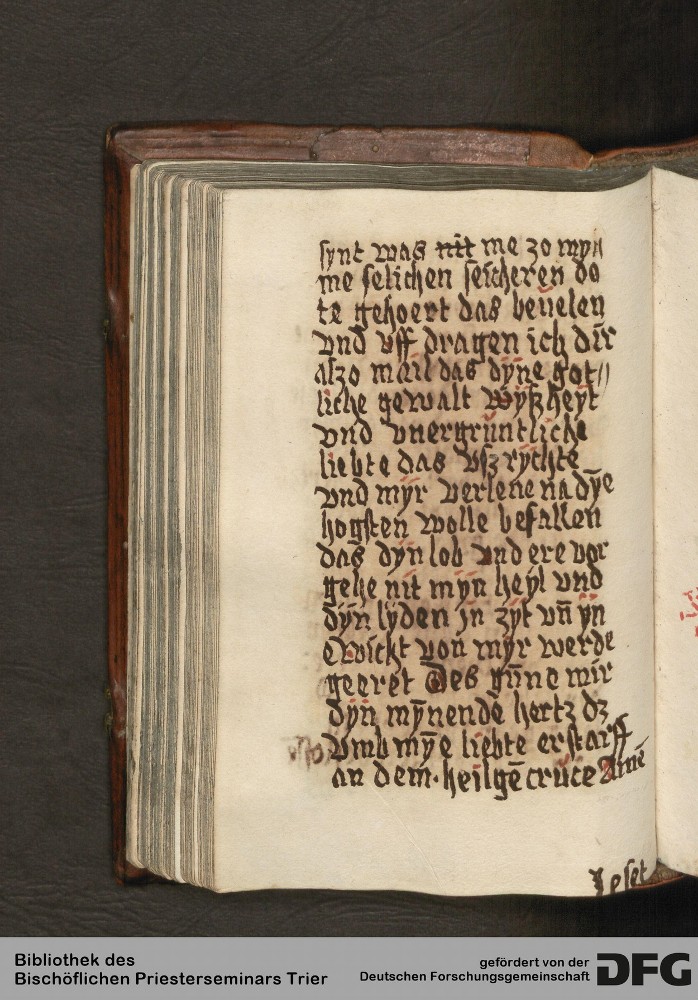 synt was nit me zo myn
me selichen seicheren do
te gehoert das beuelen
vnd vff dragen ich dir
alzo mail das dÿne got//
liche gewalt wÿßheÿt
vnd vnergruntliche
liebte das vsz rÿchte
vnd mÿr verlene na dȳe
hogsten wolle befallen
das dÿn lob vnd ere vor
gehe nit mÿn heÿl vnd
dÿn lÿden jn zÿt vn̄ ÿn
ewicht von mÿr werde
geeret Des gūne mir
dÿn mÿnendē hertz dz
vmb mȳe liebte erstarff
an dem heilgē cruce Amē
Jeset
Bibliothek des
Bischöflichen Priesterseminars Trier
gefördert von der
Deutschen Forschungsgemeinschaft
DFG